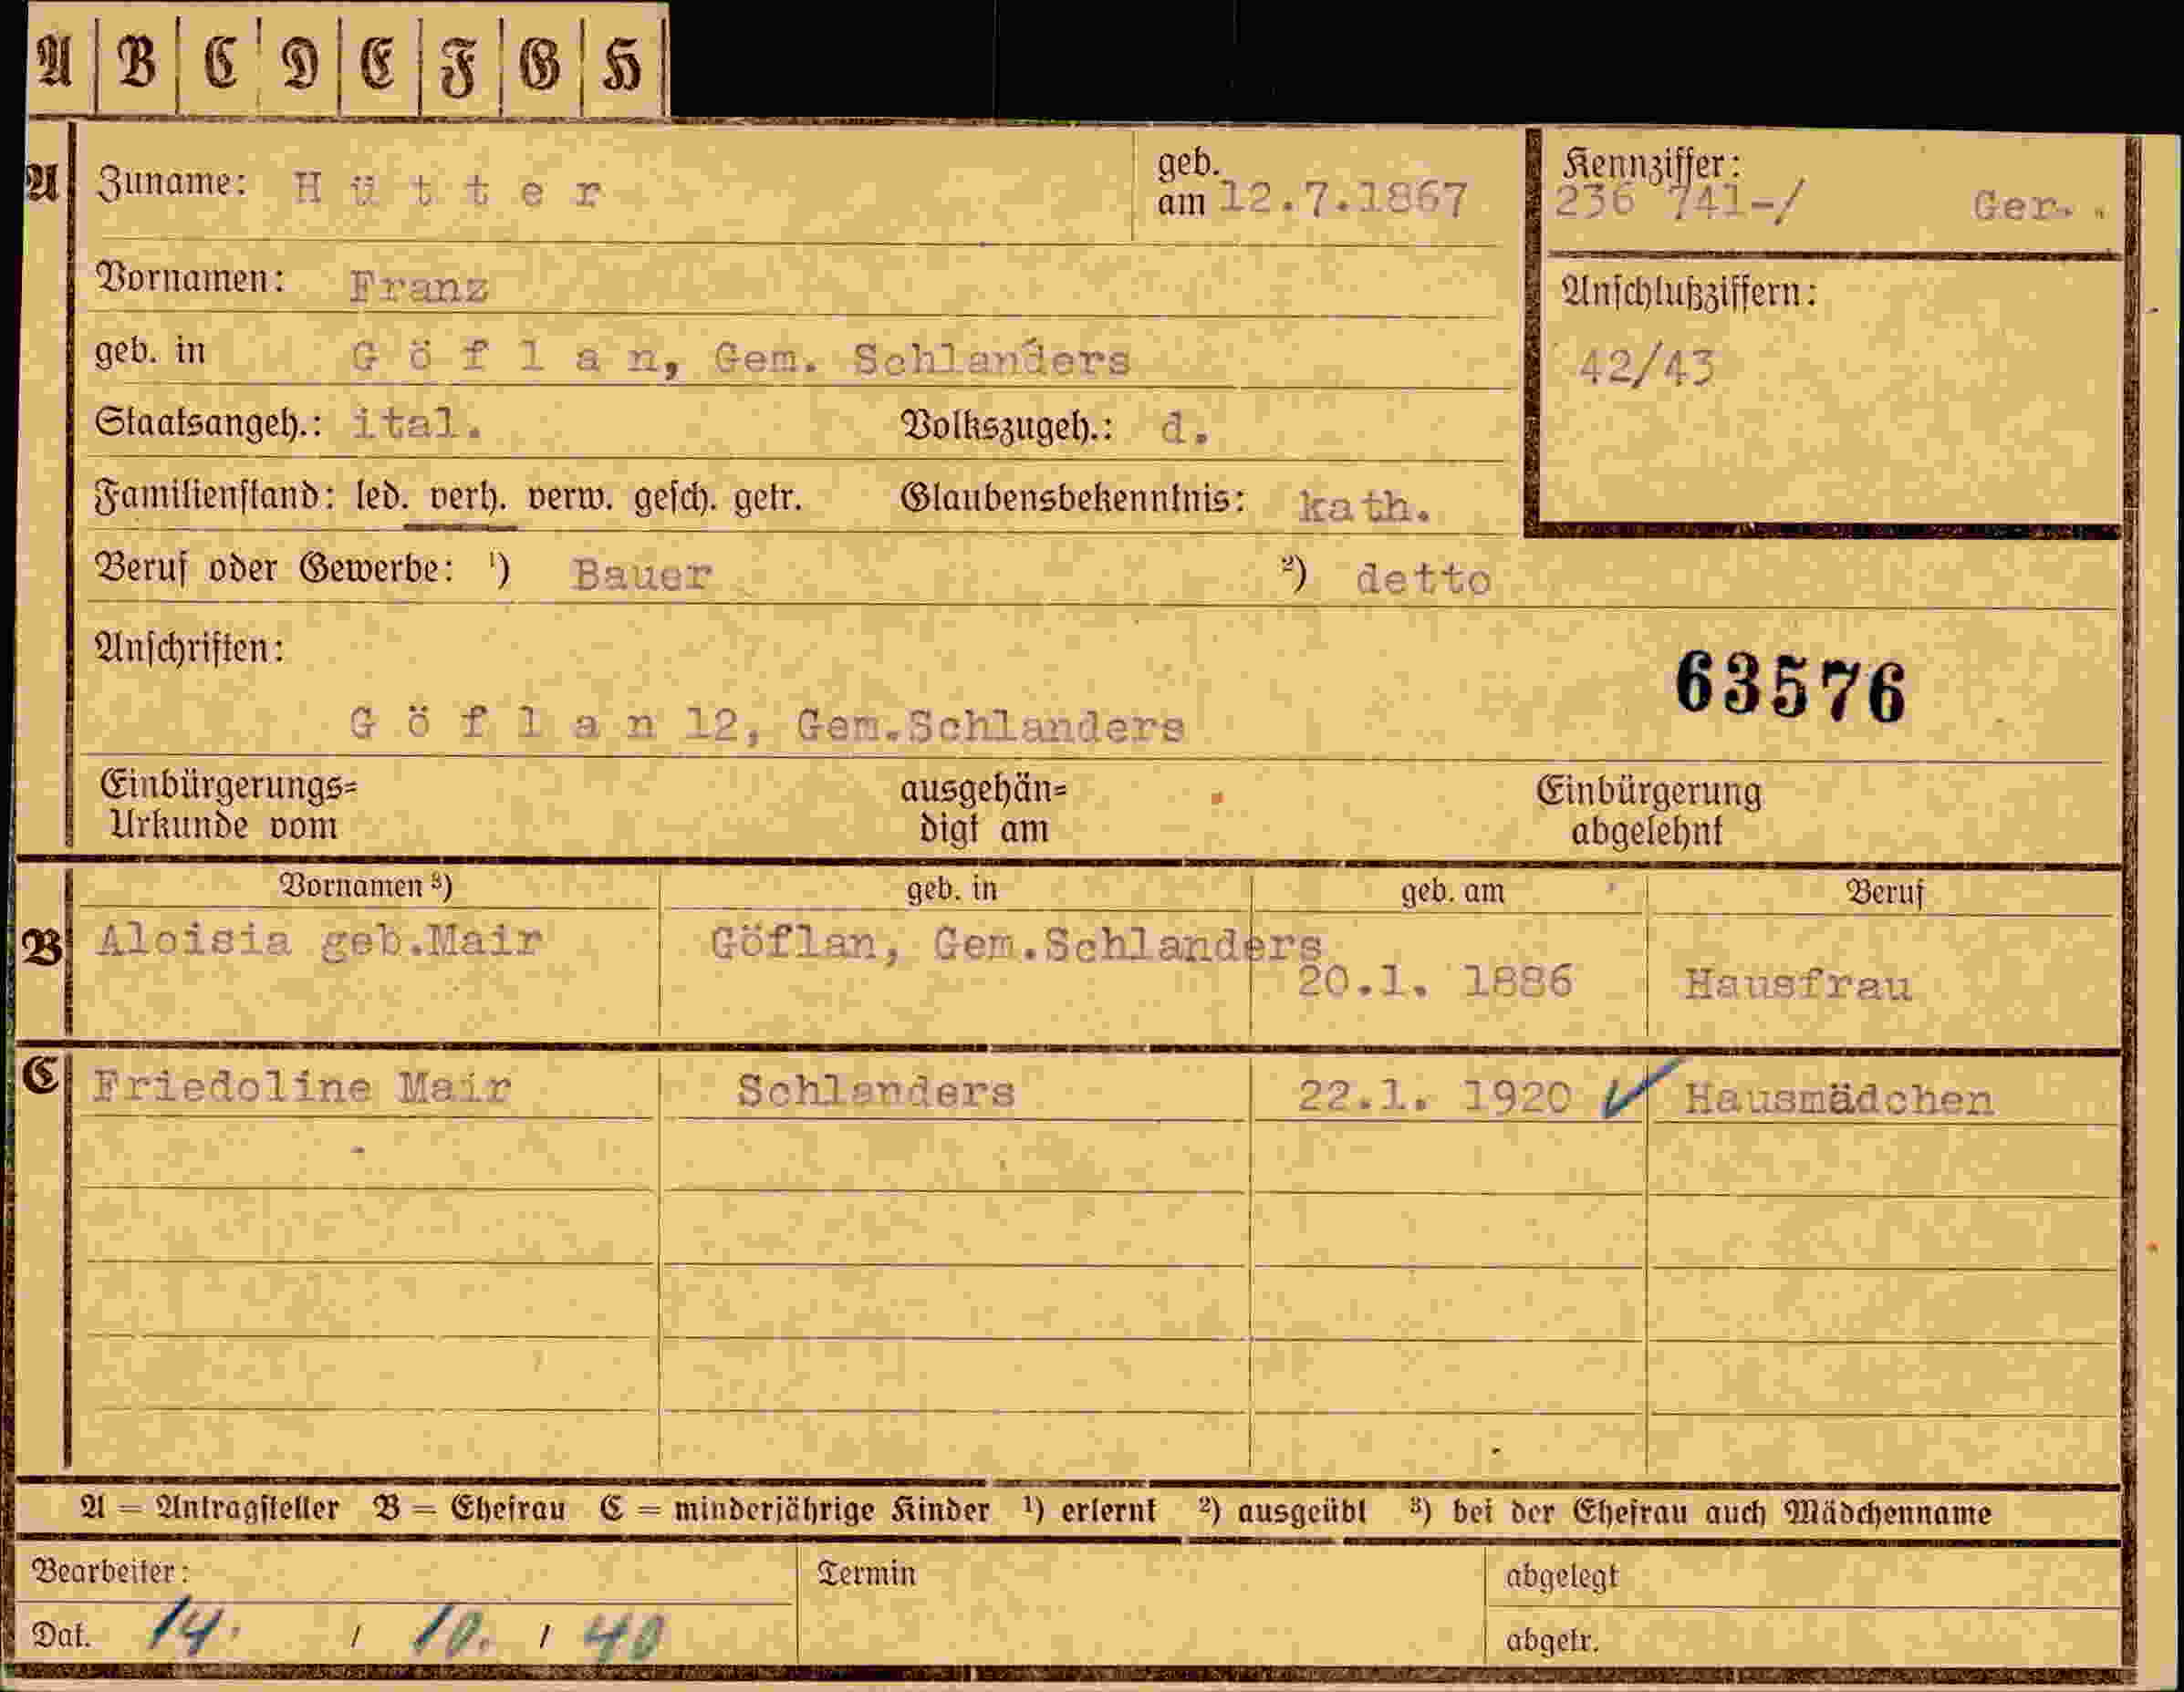 A B C D E F G H
A Zuname: Hütter geb. am 12.7.1867 Kennziffer: 236 741-/ Ger..
Vornamen: Franz
Anschlußziffern:
geb. in Göflan, Gem. Schlanders 42/43
Staatsangeh.: ital. Volkszugeh.: d.
Familienstand: led. verh. verw. gesch. getr. Glaubensbekenntnis: kath.
Beruf oder Gewerbe: ¹) Bauer ²) detto
Anschriften:
63576
Göflan 12, Gem.Schlanders
Einbürgerungs= ausgehän= Einbürgerung
Urkunde vom digt am abgelehnt
Vornamen ³) geb. in geb. am Beruf
B Aloisia geb.Mair Göflan, Gem.Schlanders
20.1. 1886 Hausfrau
C Friedoline Mair Schlanders 22.1. 1920 Hausmädchen
A = Antragsteller B = Ehefrau C = minderjährige Kinder ¹) erlernt ²) ausgeübt ³) bei der Ehefrau auch Mädchenname
Bearbeiter: Termin abgelegt
Dat. 14. / 10. / 40 abgetr.